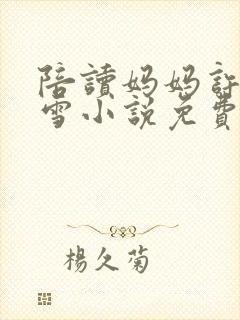 陪讀妈妈許
雪小說免費
楊久菊